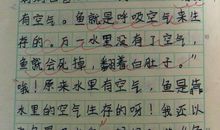 有空气。鱼就是呼吸空气来生
存的。万一水里没有了空气,
鱼就会死掉,翻着白肚子。”
哦!原来水里有空气,鱼是靠
水里的空气生存的呀!我还以